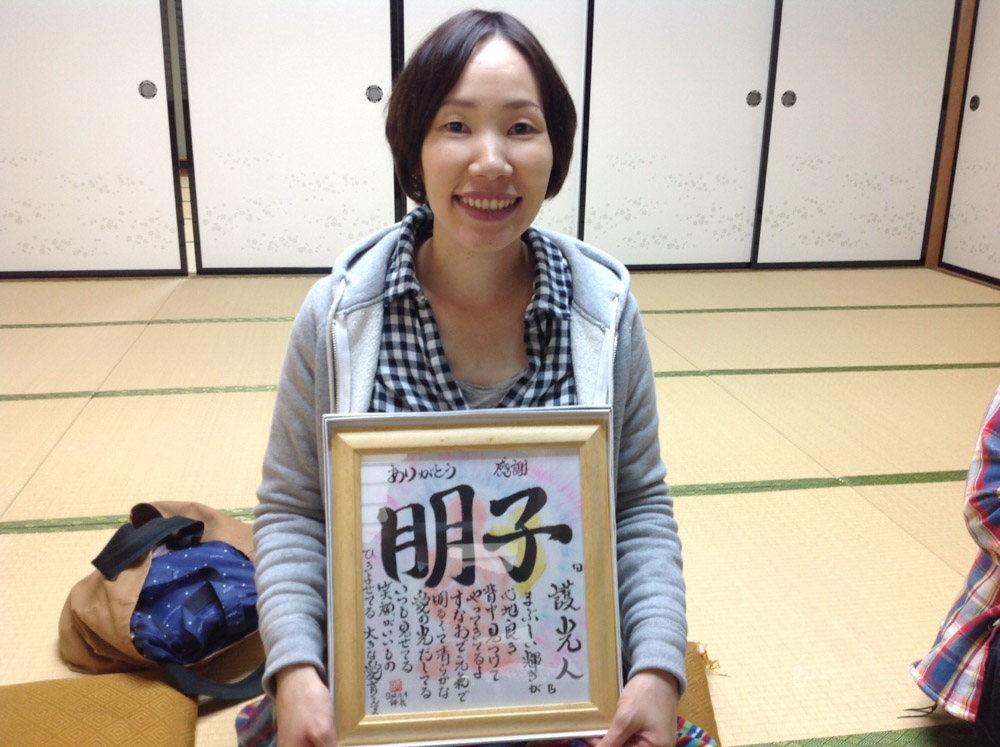 ありがとう 感謝
明子
『護光人』
まぶしい輝きが
心地良き
背中見つけて
やってきてるよ
すなおで元氣で
明るくて清らかな
愛の光だしてる
いつも見せてる
笑顔がいいもの
ひきよせてる 大きな愛